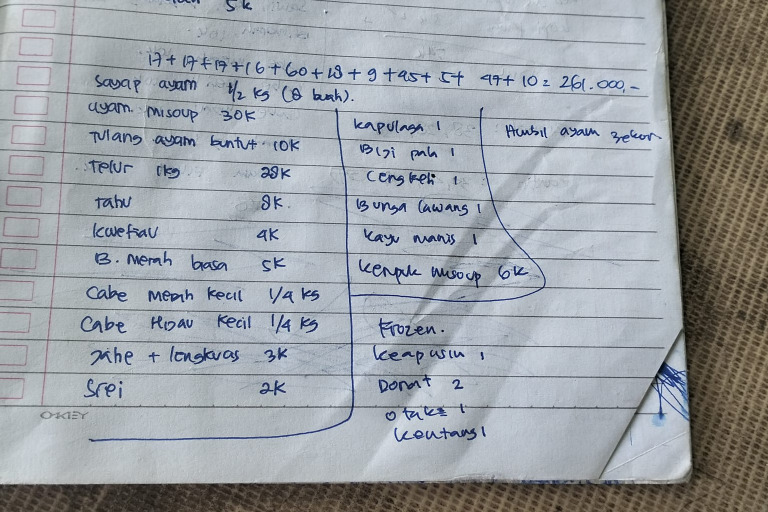 5k
17 + 17 + 19 + 16 + 60 + 18 + 9 + 45 + 5 + 44 + 10 = 261.000,-
Sayap ayam 1/2 kg (8 buah).
ayam misoup 30K
Tulang ayam buntut 10K
Telur 1kg 28K
tahu 8K.
kwetiau 4K
B. merah biasa 5K
Cabe Merah Kecil 1/4 kg
Cabe Hijau Kecil 1/4 kg
Jahe + lengkuas 3K
Srei 2K
Kapulaga 1
Biji pala 1
Cengkeh 1
Bunga lawang 1
Kayu manis 1
kerupuk misoup 6K
Ambil ayam 3ekor
Frozen.
1
Donat 2
otak2 1
kentang 1
O-KEY